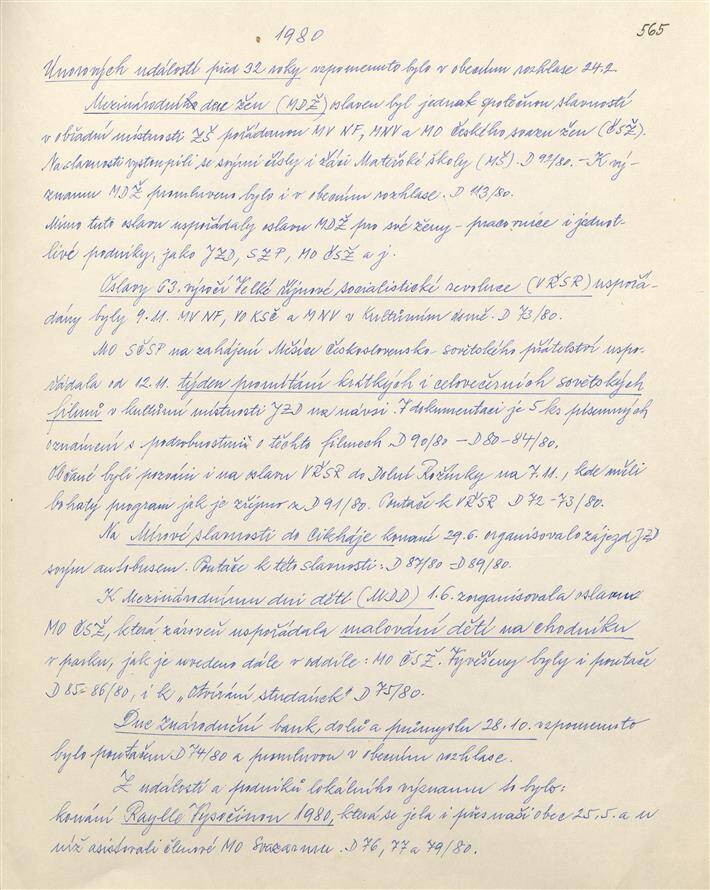 1980
565
Únorových událostí před 32 roky vzpomenuto bylo v obecním rozhlase 24.2.
Mezinárodního dne žen (MDŽ) oslaven byl jednak společnou slavností
v obřadní místnosti ZŠ pořádanou MV NF, MNV a MO Českého svazu žen (ČSŽ).
Na slavnosti vystoupili se svými čísly i žáci Mateřské školy (MŠ). D 92/80. – K vý-
znamu MDŽ promluveno bylo i v obecním rozhlase. D 113/80.
Mimo tuto oslavu uspořádaly oslavu MDŽ pro své ženy – pracovnice i jednot-
livé podniky, jako JZD, SZP, MO ČSŽ a j.
Oslavy 63. výročí Velké Říjnové socialistické revoluce (VŘSR) uspořá-
dány byly 9.11. MV NF, VO KSČ a MNV v Kulturním domě. D 73/80.
MO SČSP na zahájení Měsíce Československo-sovětského přátelství uspo-
řádala od 12.11. týden promítání krátkých i celovečerních sovětských
filmů v kulturní místnosti JZD na návsi. V dokumentaci je 5 ks písemných
oznámení s podrobnostmi o těchto filmech. D 90/80 – D 80–84/80.
Občané byli pozváni i na oslavu VŘSR do Dolní Rožínky na 7.11., kde měli
bohatý program jak je zřejmo z D 91/80. Poutače k VŘSR D 72–73/80.
Na Mírové slavnosti do Cikháje konané 29.6. organisovalo zájezd JZD
svým autobusem. Poutače k této slavnosti: D 87/80 – D 89/80.
K Mezinárodnímu dni dětí (MDD) 1.6. zorganisovala oslavu
MO ČSŽ, která zároveň uspořádala malování dětí na chodníku
v parku, jak je uvedeno dále v oddíle: MO ČSŽ. Vyvěšeny byly i poutače
D 85–86/80, i k „Otvírání studánek" D 75/80.
Dne znárodnění bank, dolů a průmyslu 28.10. vzpomenuto
bylo poutačem D 74/80 a promluvou v obecním rozhlase.
Z událostí a podniků lokálního významu to bylo:
konání Raylle Vysočinou 1980, která se jela i přes naši obec 25.5. a u
níž asistovali členové MO Svazarmu. D 76, 77 a 79/80.